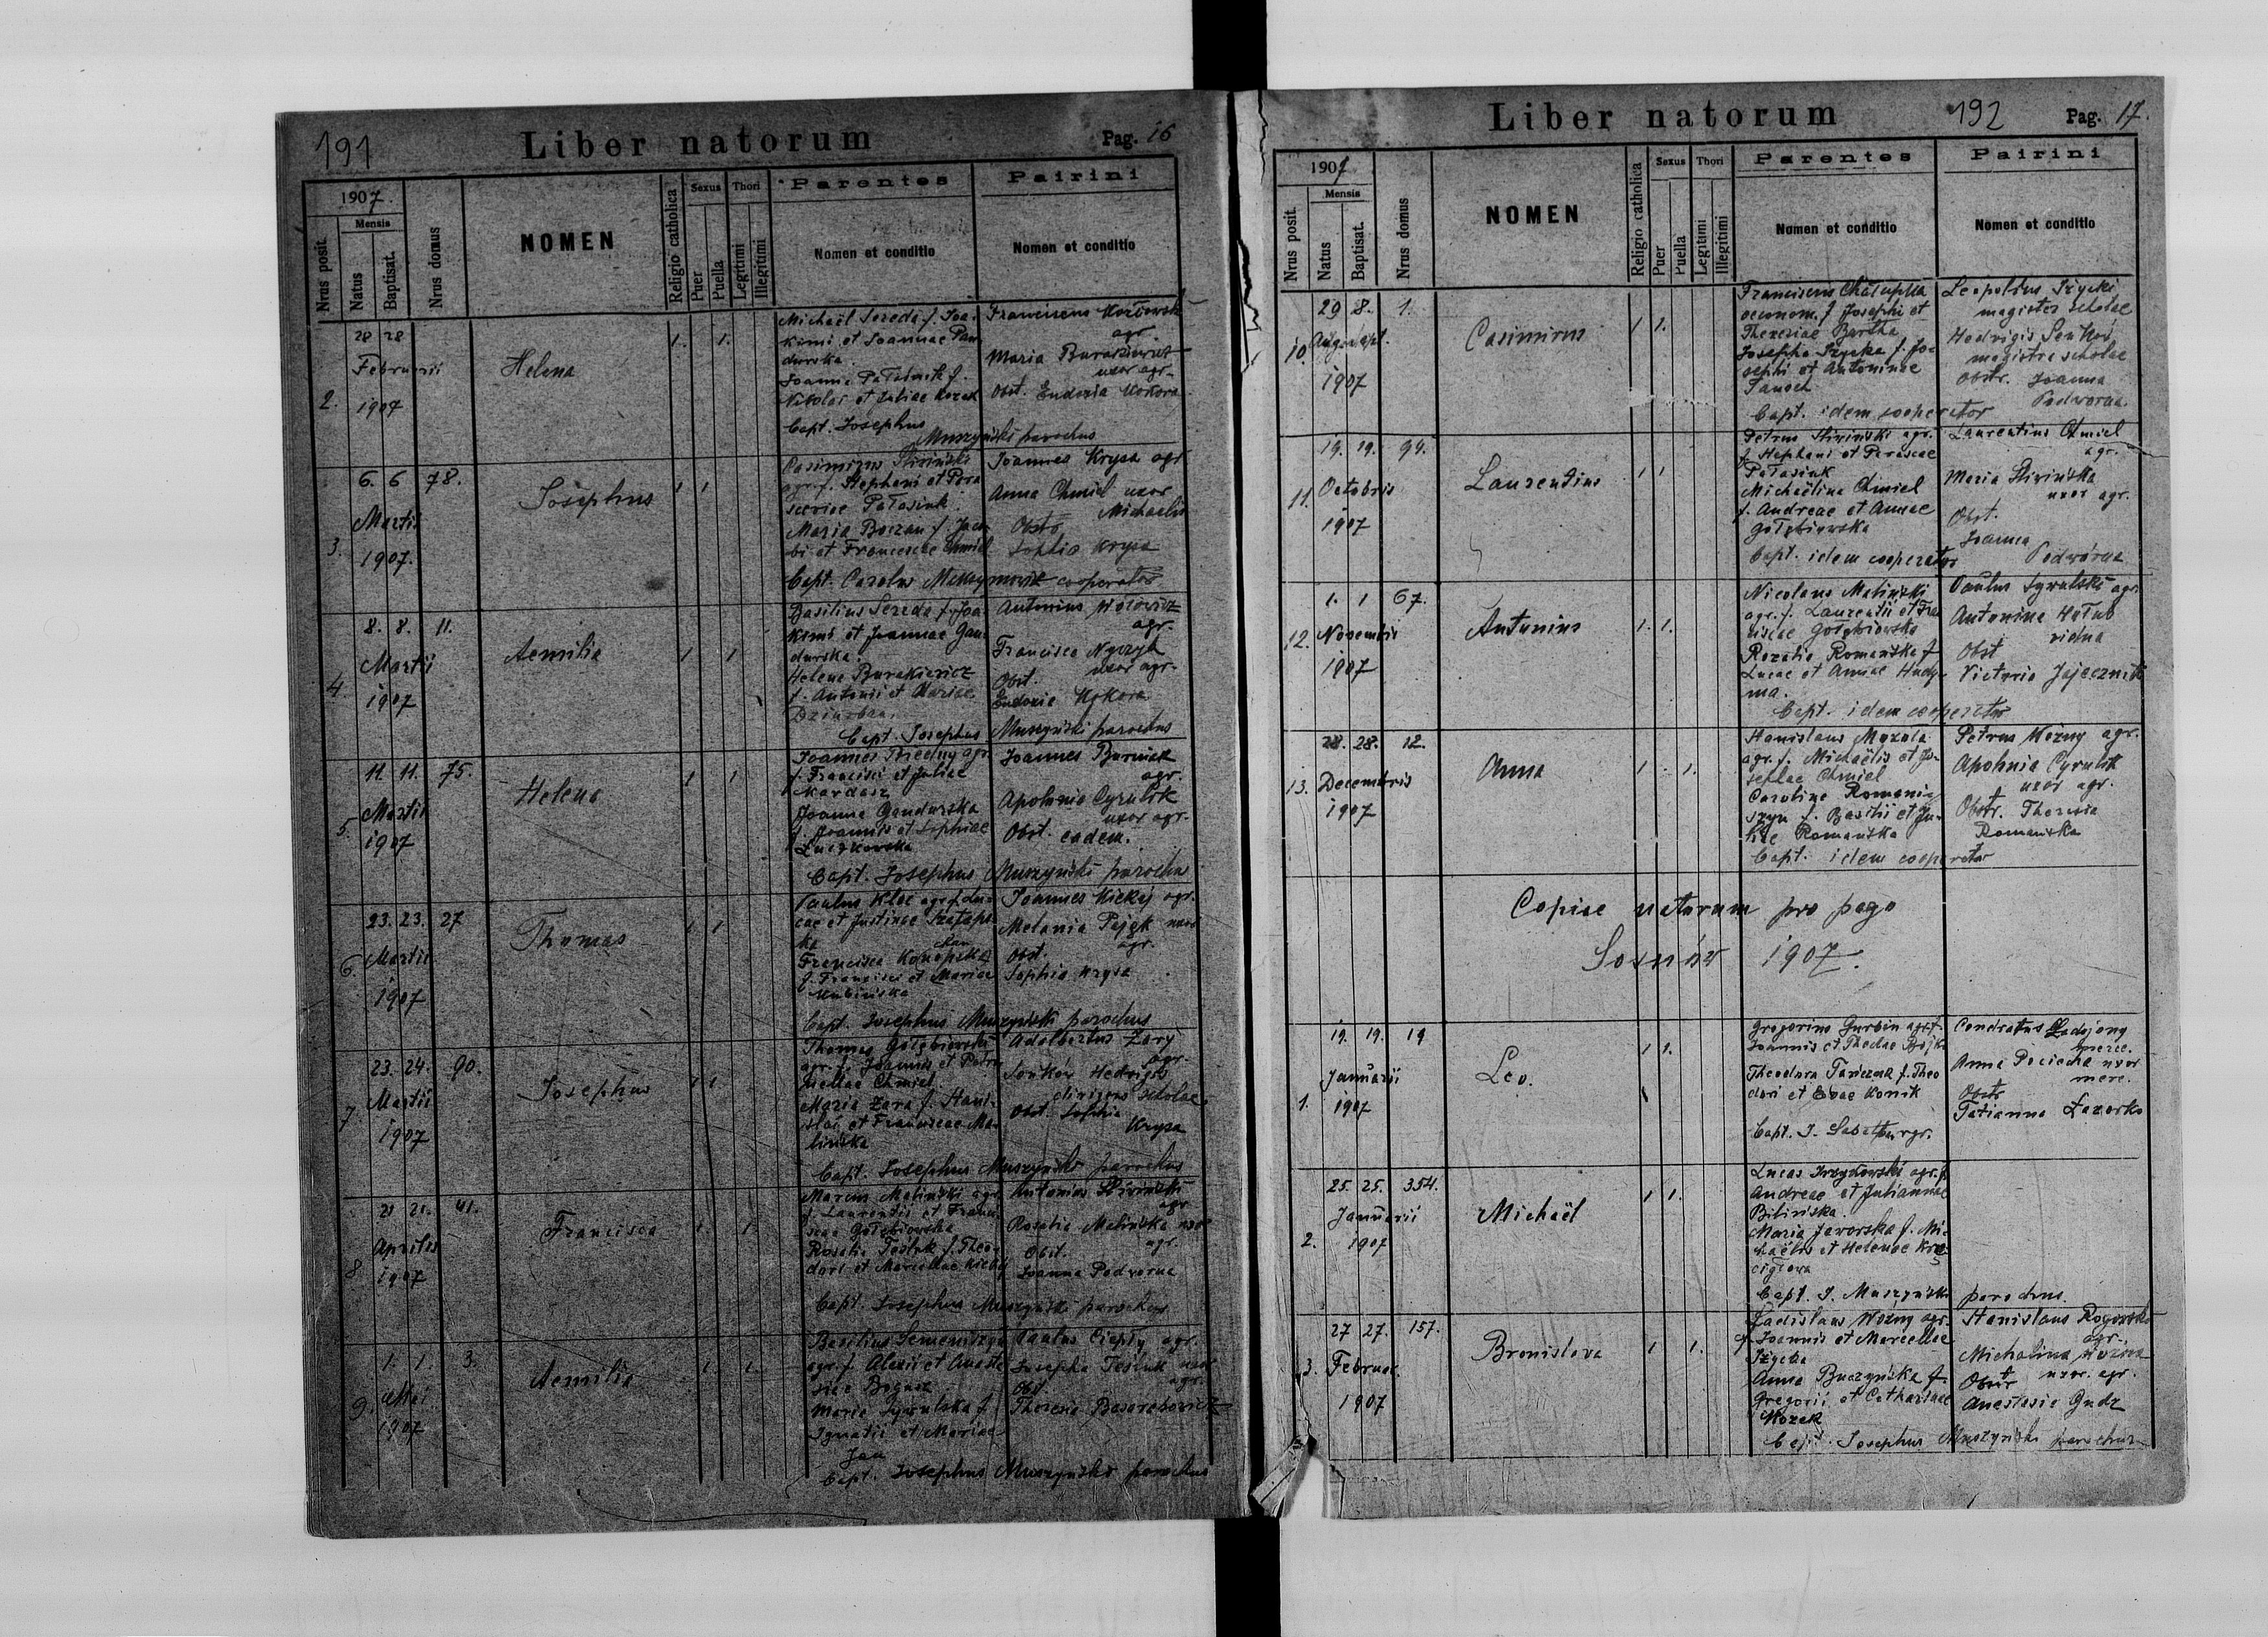 191
Liber natorum
Pag. 16
1907.
Mensis
Nrus posit.
Natus
Baptisat.
Nrus domus
NOMEN
Religio catholica
Sexus
Puer
Puella
Thori
Legitimi
Illegitimi
Parentes
Nomen et conditio
Pairini
Nomen et conditio
2.
28 28
Februarii
1907
Helena
1. 1.
Michaël Sereda f. Joa-
kimi et Joannae
durska
Joanna Patasiuk f.
Nikolai et Juliae
Bapt. Josephus
Muszyński parochus
Franciscus
agr.
Maria Burakiewicz
uxor agr.
Obst. Eudoxia Kokora
3.
6. 6 78.
Martii
1907.
Josephus
1 1
Casimirus Śliwiński
agr. f. Stephani et Para
sceviae Patasiuk.
Maria f. Jaco-
bi et Franciscae Chmiel
Bapt. Carolus cooperator
Joannes Krysa agr
Anna Chmiel uxor
Michaelis
Obstr.
Sophia Krysa
4
8. 8. 11.
Martii
1907
Aemilia
1 1
Basilius Sereda f. Joa-
kimi et Joannae Gan-
durska.
Helena Burakiewicz
f. Antonii et Mariae
Bapt. Josephus Muszyński parochus
Antonius
agr.
Francisca
uxor agr.
Obst.
Eudoxia Kokora
5.
11. 11. 75.
Martii
1907
Helena
1 1
Joannes Średny agr.
f. Francisci et Juliae
Kardasz
Joanna Gandurska
f. Joannis et Sophiae
Luczkowska
Bapt. Josephus Muszyński parochus
Joannes Burniak
agr.
Apolonia Cyrulik
uxor agr.
Obst. eadem.
6.
23. 23. 27
Martii
1907
Thomas
1 1
Paulus Kloc agr. f. Lu-
cae et Justinae
ka
Francisca
f. Francisci et Mariae
Kubińska
Bapt. Josephus Muszyński parochus
Joannes Kickij agr.
Melania uxor
agr.
Obst.
Sophia Krysa
7.
23. 24. 90.
Martii
1907
Josephus
1 1
Thomas Gołębiowski
agr. f. Joannis et Petro-
nellae Chmiel
Maria Żara f. Stani-
slai et Franciscae Ma-
lińska
Bapt. Josephus Muszyński parochus
Adalbertus Żary
agr.
Hedvigis
dirigens scholae
Obst. Sophia
Krysa
8
21 21. 41.
Aprilis
1907
Francisca
1. 1
Marcus Maliński agr.
f. Laurentii et Franci-
scae Gołębiowska
Rosalia f. Theo-
dori et Marcellae
Bapt. Josephus Muszyński parochus
Antonius Śliwiński
agr
Rosalia Malińska uxor
agr.
Obst.
Joanna Podworna
9.
1. 1. 3.
Maii
1907
Aemilia
1. 1.
Basilius
agr. f. Alexii et Anasta
siae
Maria Sywulska f.
Ignatii et Mariae
Bapt. Josephus Muszyński parochus
Paulus Ciepły agr.
Josepha uxor
agr.
Obst
Theresa Basarabowicz
Liber natorum
192
Pag. 17.
1907
Mensis
Nrus posit.
Natus
Baptisat.
Nrus domus
NOMEN
Religio catholica
Sexus
Puer
Puella
Thori
Legitimi
Illegitimi
Parentes
Nomen et conditio
Pairini
Nomen et conditio
10
29 8. 1.
1907
Casimirus
1 1.
Franciscus Chałupka
oeconom. f. Josephi et
Theresiae Bartha
Josepha Szycka f. Jo-
sephi et Antoninae
Bapt. idem cooperator
Leopoldus
magister scholae
Hedvigis
magistra scholae
Obstr. Joanna
Podworna.
11.
19. 19. 94.
Octobris
1907
Laurentius
1 1
Petrus Śliwiński agr.
f. Stephani et Parascae
Patasiuk
Michaëlina Chmiel
f. Andreae et Annae
Gołębiowska
Bapt. idem cooperator
Laurentius Chmiel
agr.
Maria Śliwińska
uxor agr.
Obst.
Joanna
Podwórna
12.
1. 1 67.
Novembris
1907
Antonius
1. 1.
Nicolaus Maliński
agr. f. Laurentii et Fran
ciscae Gołębiowska
Rozalia Romańska f.
Lucae et Annae Hudy-
ma.
Bapt. idem cooperator
Paulus Sywulski agr.
Antonina Hołub
vidua
Obst
Victoria Jajecznik
13.
28. 28. 12.
Decembris
1907
Anna
1 1.
Stanislaus
agr. f. Michaëlis et Jo-
sephae Chmiel
Carolina Romani-
szyn f. Basilii et Ju-
liae Romańska
Bapt. idem cooperator
Petrus Woźny agr.
Apolonia Cyrulik
uxor agr.
Obstr. Theresia
Romańska
Copiae natorum pro pago
Sosnów 1907.
1.
19. 19. 19
Januarii
1907
Leo.
1 1.
Gregorius Gurbin agr. f.
Joannis et Theclae
Theodora f. Theo
dori et Evae Konik
Bapt. J.
Condratus
merc.
Anna Pociecha uxor
merc.
Obstr
Tatianna Łazorko
2.
25. 25. 354.
Januarii
1907
Michaël
1 1.
Lucas agr. f.
Andreae et Juliannae
Bilińska.
Maria Jaworska f. Mi-
chaëlis et Helenae
Bapt. J. Muszyński parochus.
3.
27 27. 157.
Februar.
1907
Bronislava
1 1.
Ladislaus Woźny agr.
f. Joannis et Marcellae
Anna Buczyńska f.
Gregorii et Catharinae
Kozak
Bapt. Josephus Muszyński parochus
Stanislaus Rogowski
agr.
Michalina Woźna
uxor. agr.
Obstr
Anastasia Gudz